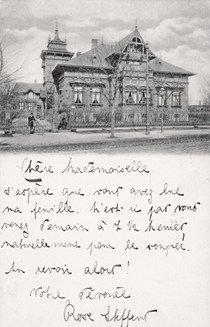 Chère Mademoiselle
J'espère que vous avez lue
ma feuille. N'est-il pas vous
venez demain à 7 ½
naturellement pour le souper.
Au revoir alors!
Votre dévouée
Rose Steffert